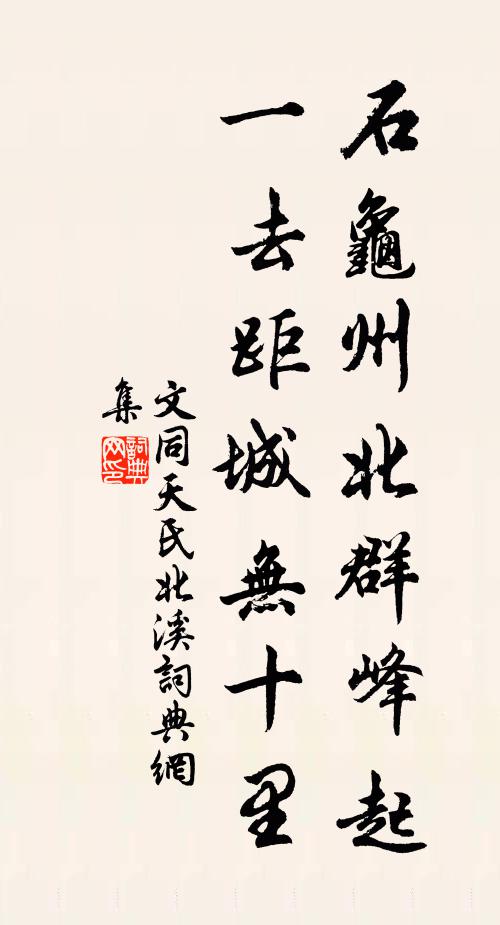 石龜州北群峰起
一去距城無十里
文同天民北溪詞典網
集
詞典网印